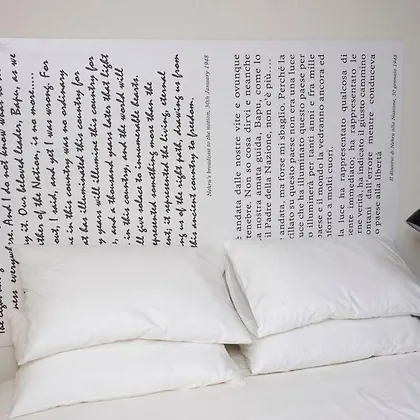 The light
ness everywhere. And I do not know what to
y it. Our beloved leader, Bapu, as we
ther of the Nation, is no more....
out, I said, and yet I was wrong. For
ne in this country was no ordinary
at has illuminated this country for
y years will illumine this country for
s, and a thousand years later that light
in this country, and the world will
ll give solace to innumerable hearts.
presented something more than the
it represented the living, eternal
ng us of the right path, drawing us from
this ancient country to freedom.
Nehru's broadcast to the nation, 30th January 1948
andata dalle nostre vite e ovunque
tenebre. Non so cosa dirvi e neanche
a nostra amata guida, Bapu, come lo
il Padre della Nazione, non c'è più....
andata, ma mi sbaglio, perché la
rillato su questo paese non era una luce
uce che ha illuminato questo paese per
o illuminerà per altri anni e fra mille
paese e il mondo la vedranno ancora ed
nforto a molti cuori.
la luce ha rappresentato qualcosa di
sente immediato, ha rappresentato le
ne verità, ha indicato il giusto cammino
ontani dall'errore mentre conduceva
o paese alla libertà
Il discorso di Nehru alla Nazione, 30 gennaio 1948